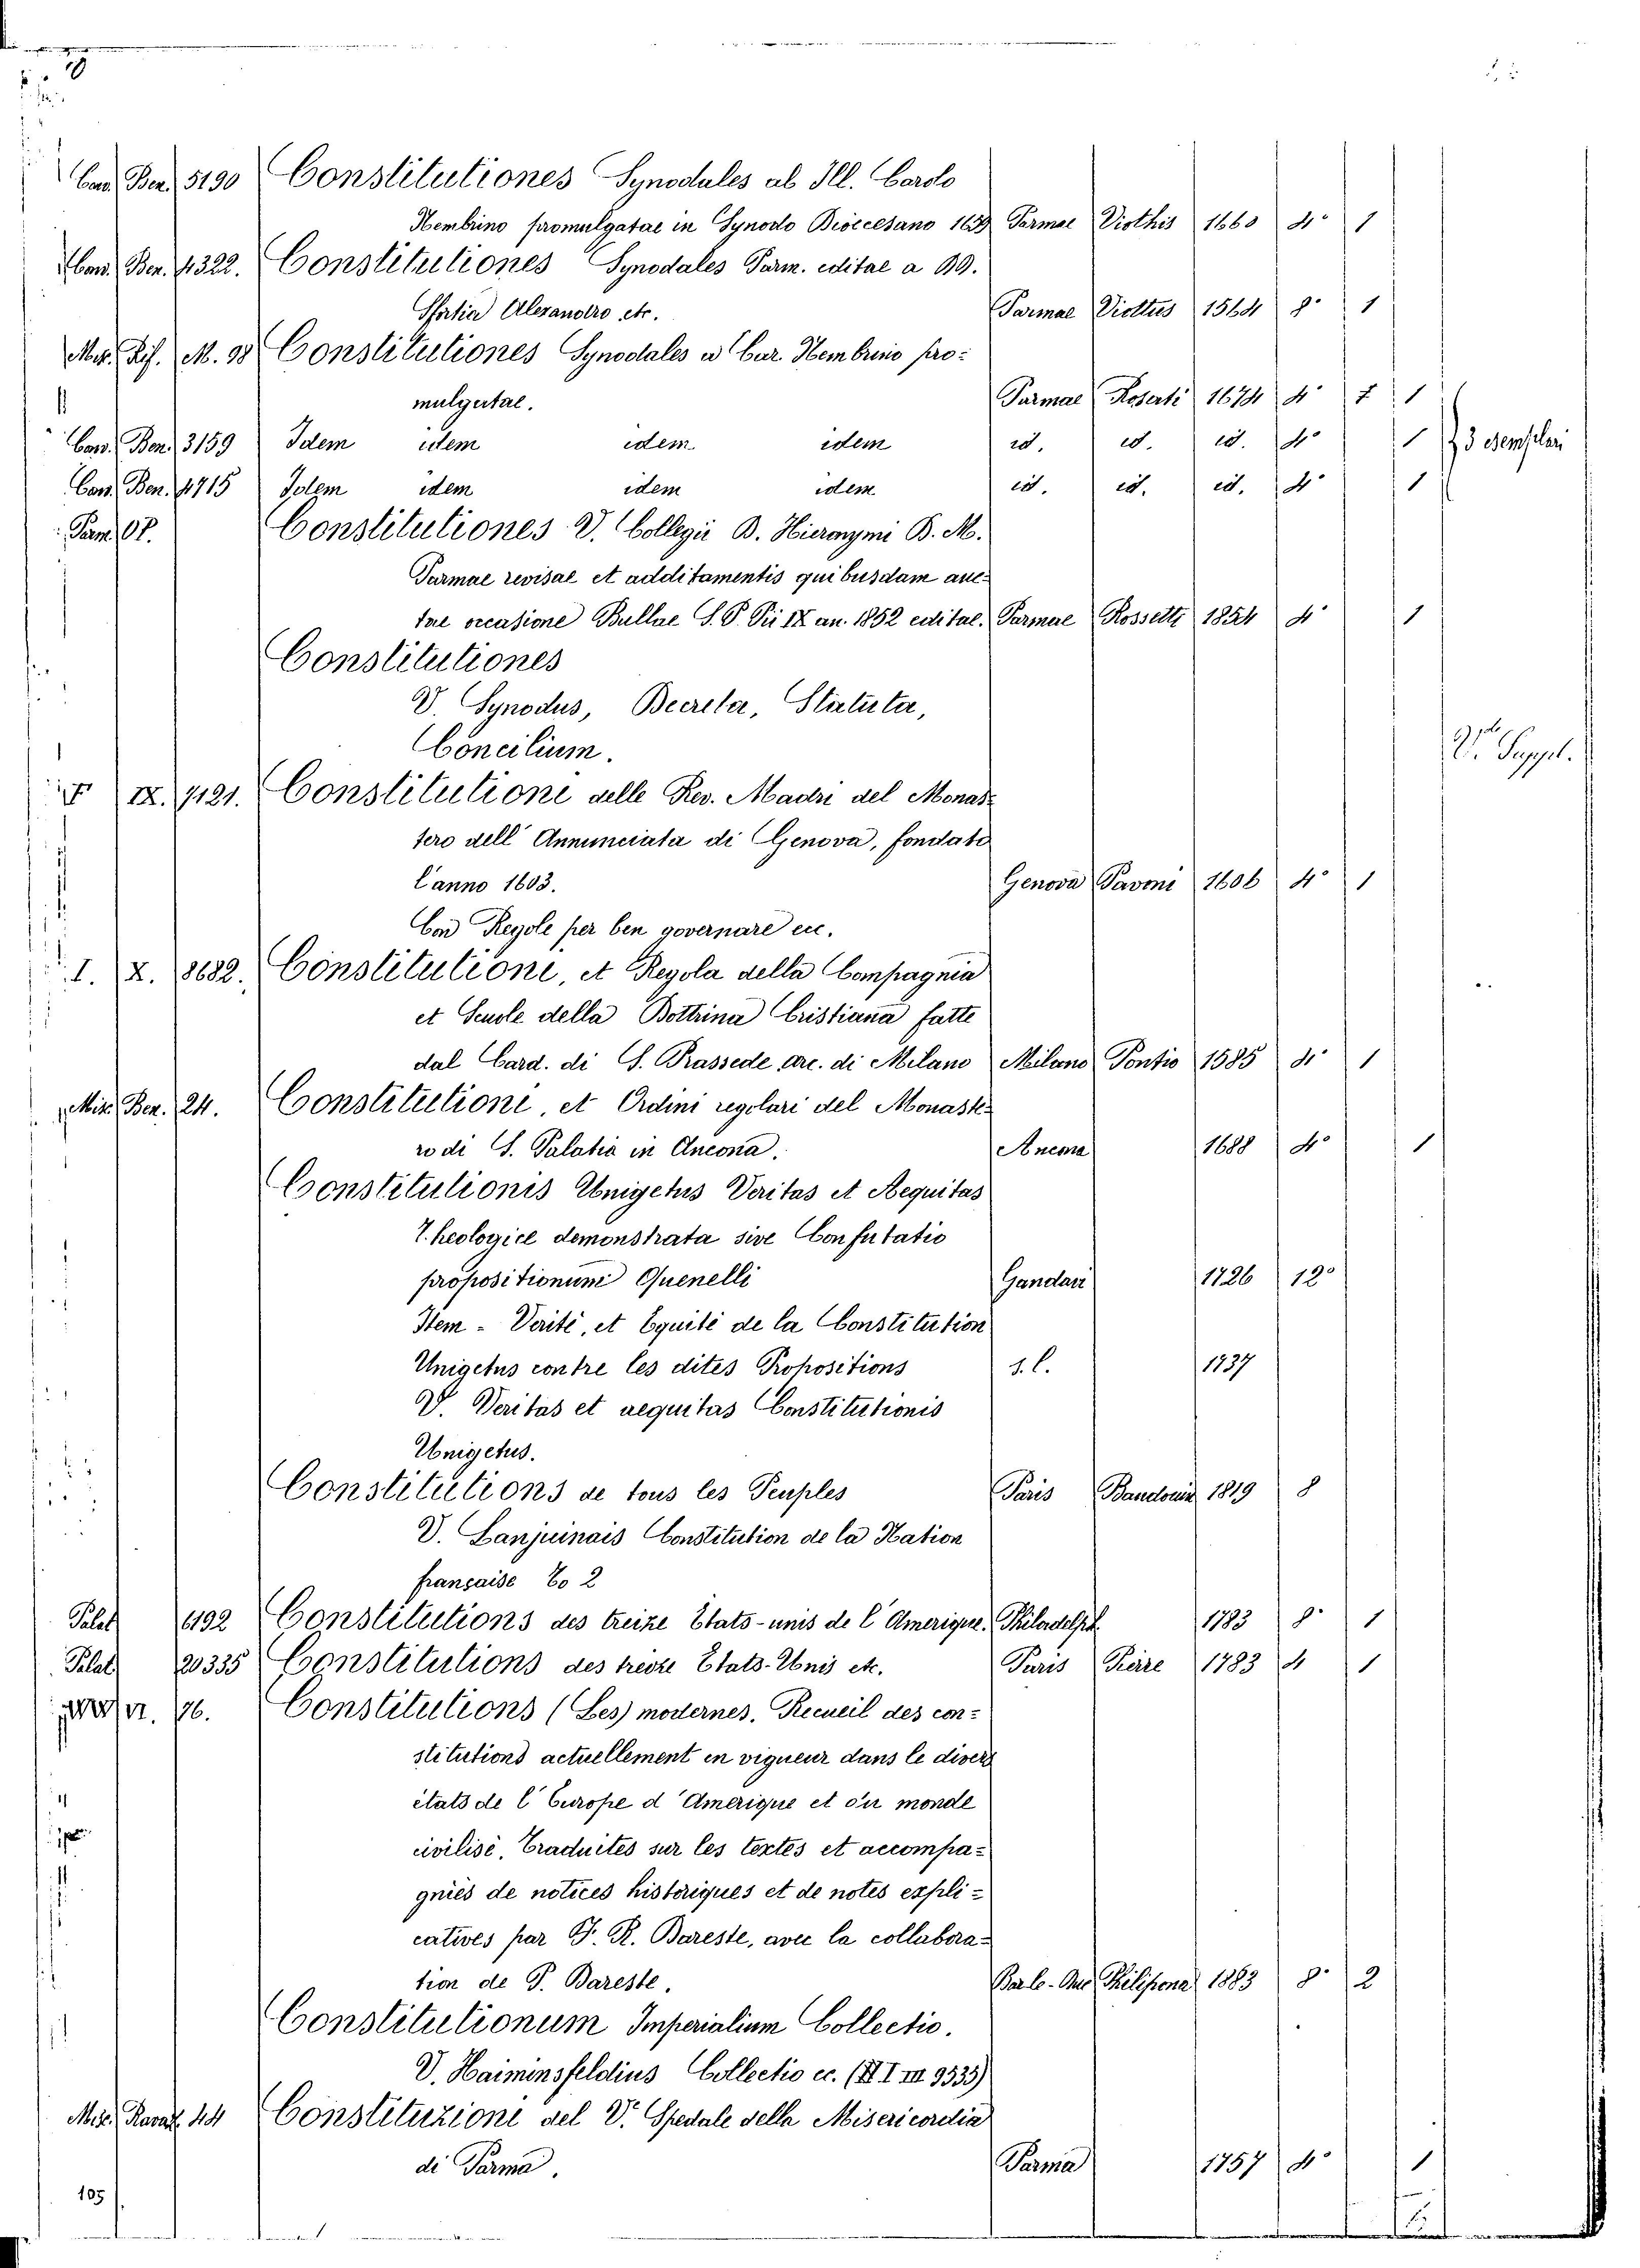 Con. Ben. 5190 Constitutiones Synodales ab Ill. Carolo
Nembrino promulgatae in Synodo Dioecesano 1659 Parmae Viothis 1660 4° 1
Con. Ben. 4322. Constitutiones Synodales Parm. editae a DD.
Sfortia Alexandro etc. Parmae Viottus 1564 8° 1
M. 98 Constitutiones Synodales a Car. Nembrino pro=
mulgatae. Parmae Rosati 1674 4° 1
Con. Ben. 3159 Idem idem idem idem id. id. id. 4° 1 3 esemplari
Con. Ben. 4715 Idem idem idem idem id. id. id. 4° 1
Parm. Constitutiones V. Collegii D. Hieronymi B. M.
Parmae revisae et additamentis quibusdam auc=
tae occasione Bullae S. P. Pii IX an. 1852 editae. Parmae Rossetti 1854 4° 1
Constitutiones
V. Synodus, Decreta, Statuta,
Concilium.
V. Suppl.
IX. 7121. Constitutioni delle Rev. Madri del Monas=
tero dell' Annunciata di Genova, fondato
l'anno 1603. Genova Pavoni 1606 4° 1
Con Regole per ben governare ecc.
I. X. 8682. Constitutioni, et Regola della Compagnia
et Scuole della Dottrina Cristiana fatte
dal Card. di S. Prassede arc. di Milano Milano Pontio 1585 4° 1
Mis. Ben. 24. Constitutioni, et Ordini regolari del Monaste=
ro di S. Palatia in Ancona. Ancona 1688 4° 1
Constitutionis Unigetus Veritas et Aequitas
Theologice demonstrata sive Confutatio
propositionum Quenelli Gandavi 1726 12°
Item - Verité, et Equité de la Constitution
Unigetus contre les dites Propositions s. l. 1737
V. Veritas et aequitas Constitutionis
Unigetus.
Constitutions de tous les Peuples Paris Baudouin 1819 8
V. Lanjuinais Constitution de la Nation
française To 2
Palat 6192 Constitutions des treize Etats-unis de l'Amerique. Philadelph. 1783 8° 1
Palat 20335 Constitutions des treize Etats-Unis etc. Paris Pierre 1783 4 1
76. Constitutions (Les) modernes. Recueil des con=
stitutions actuellement en vigueur dans le divers
états de l'Europe d'Amerique et du monde
civilisé. Traduites sur les textes et accompa=
gniés de notices historiques et de notes expli=
catives par F. R. Dareste, avec la collabora=
tion de P. Dareste. Bar le-Duc Philipona 1883 8° 2
Constitutionum Imperialium Collectio.
V. Haiminsfeldius Collectio ec. (H I III 9535)
Mis. Ravaz. 44 Constituzioni del V. Spedale della Misericordia
di Parma. Parma 1757 4° 1
105